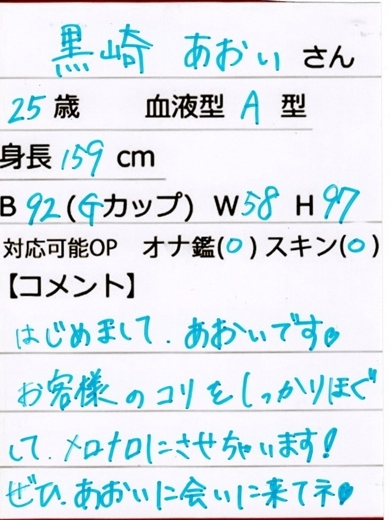 黒崎 あおい さん
25歳 血液型 A 型
身長 159 cm
B 92 (Gカップ) W58 H 97
対応可能OP オナ鑑(○) スキン(○)
【コメント】
はじめまして、あおいです♥
お客様のコリをしっかりほぐ
して、メロメロにさせちゃいます!
ぜひ、あおいに会いに来てネ♥